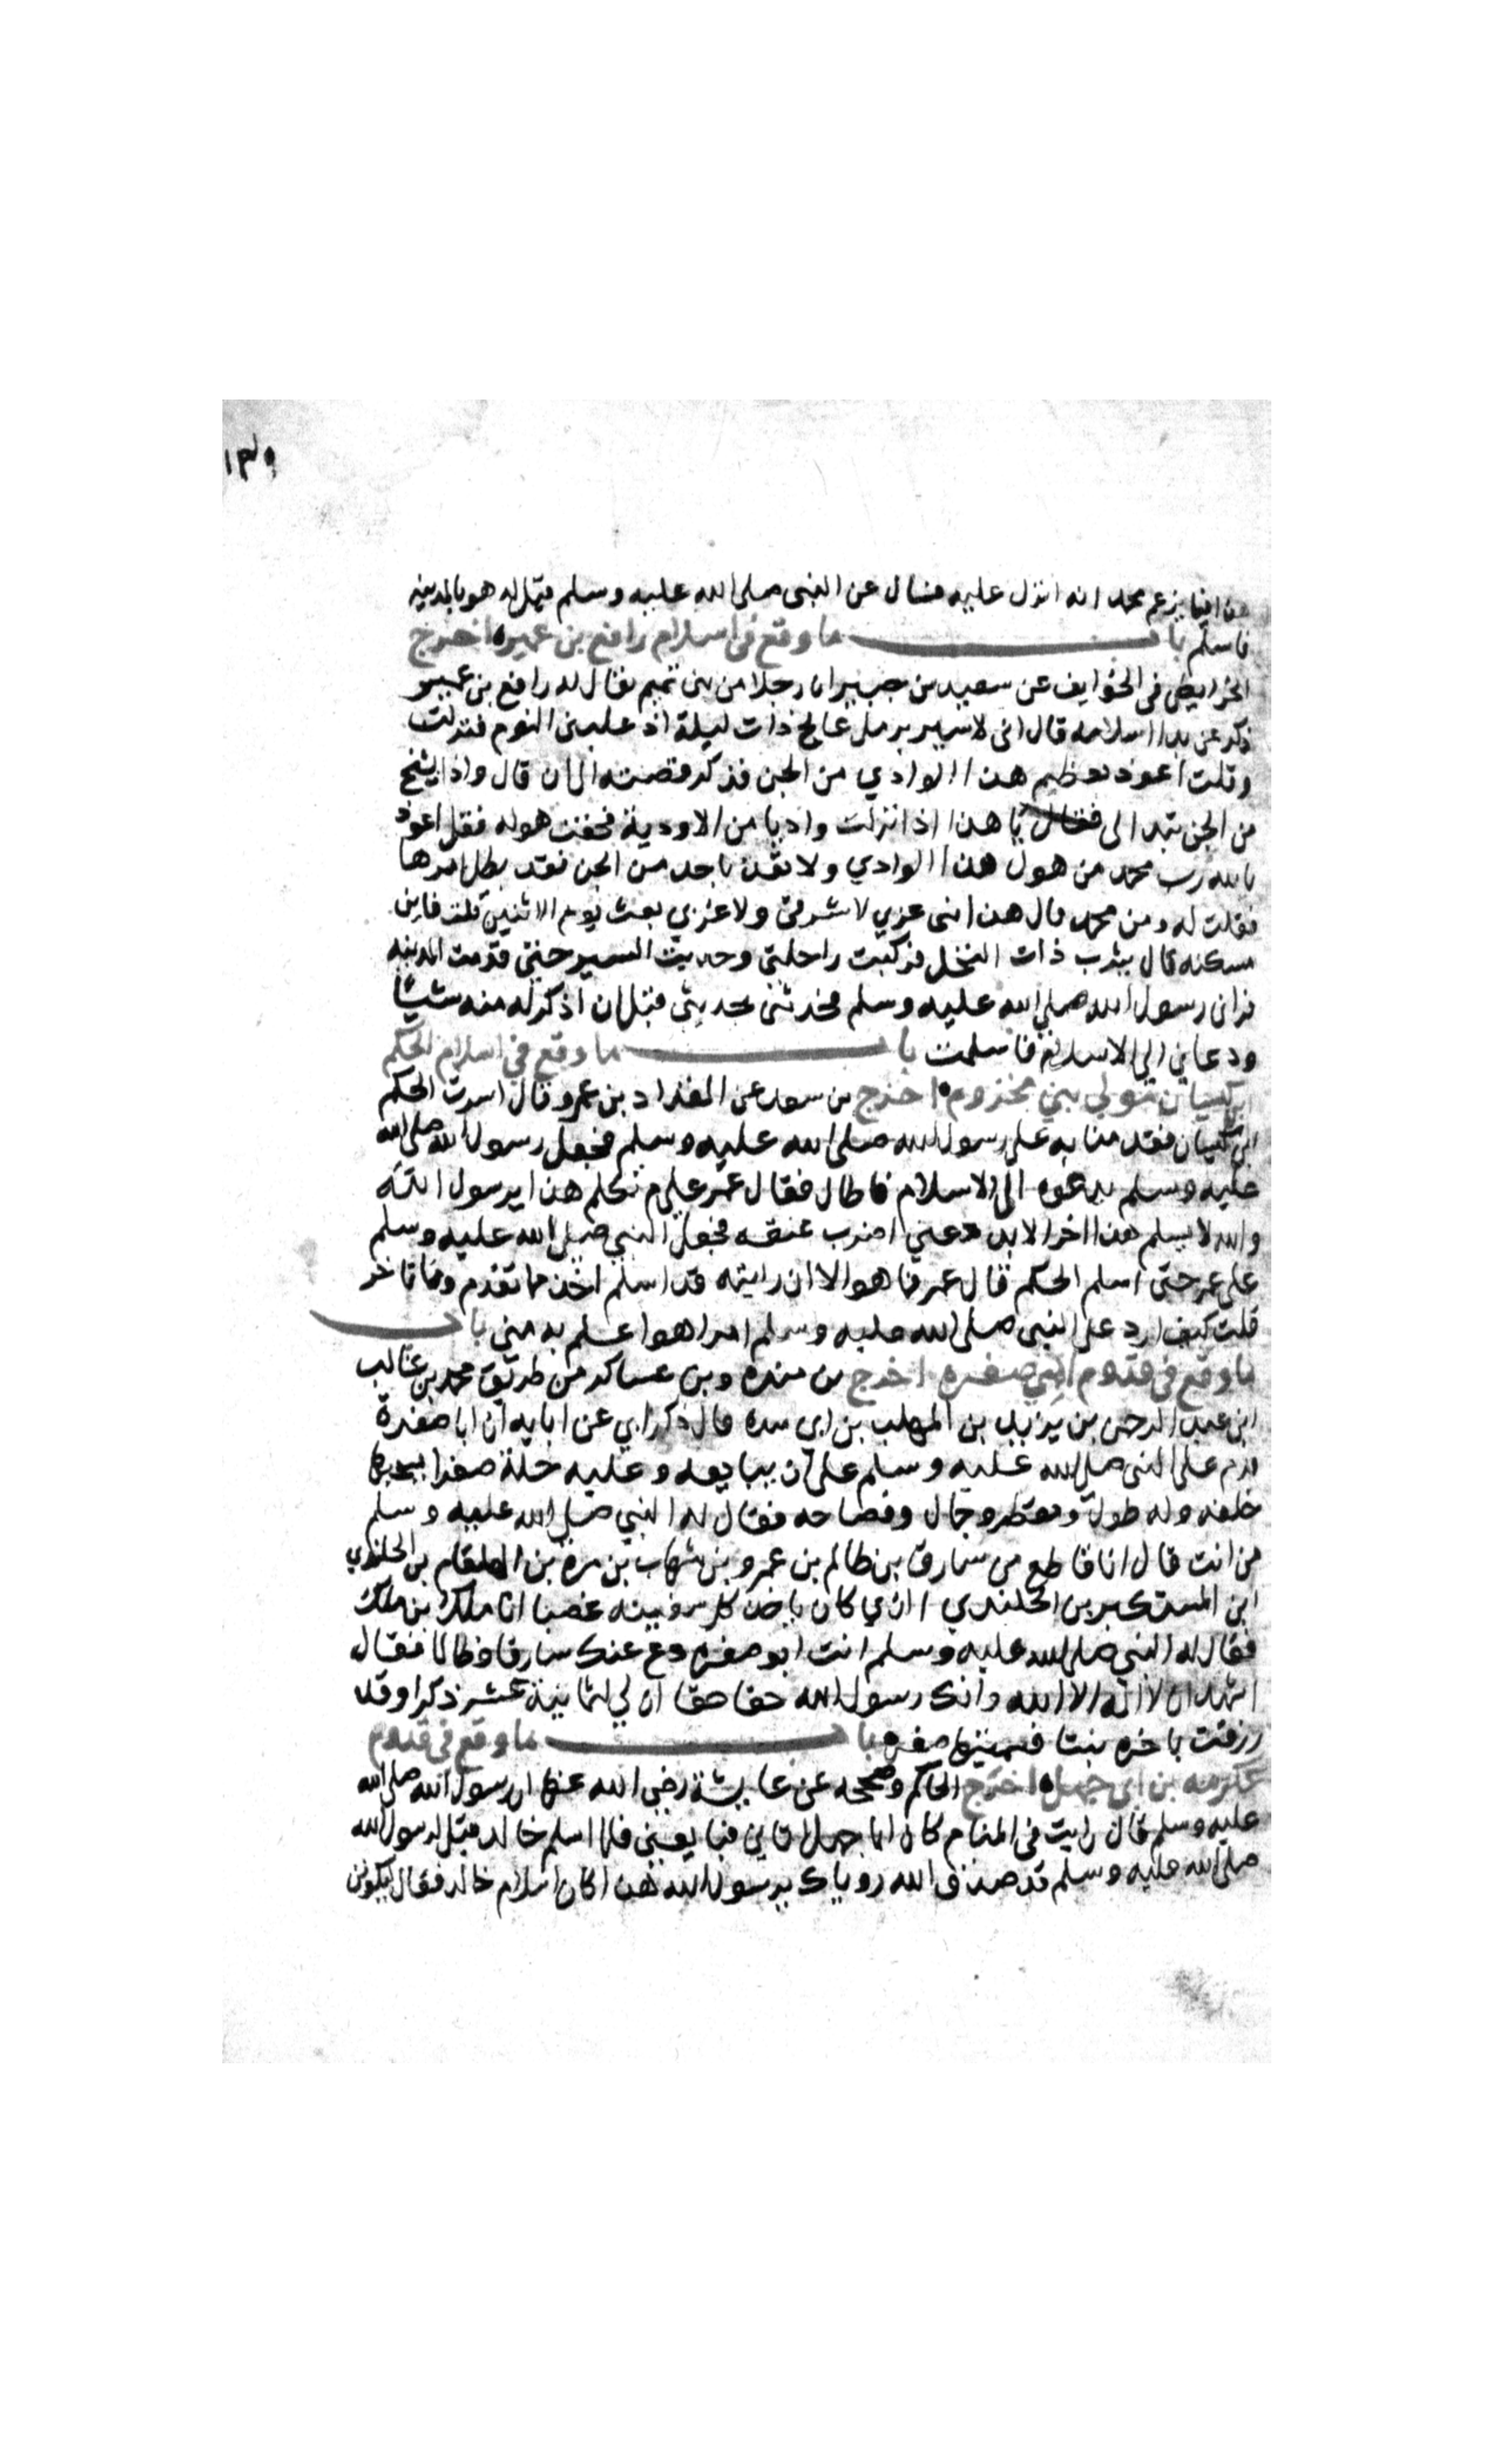 ١٣٩
هذا فيما يزعم محمد انه انزل عليه فسال عن النبي صلى الله عليه وسلم فقيل له هو بالمدينه
فاسلم باب ما وقع في اسلام رافع بن عميره اخرج
الخرايطي في الهواتف عن سعيد بن جبير ان رجلا من بني تميم يقال له رافع بن عمير
ذكر عن بدا اسلامه قال اني لاسير برمل عالج ذات ليلة اذ غلبني النوم فنزلت
وقلت اعوذ بعظيم هذا الوادي من الجن فذكر قصته الى ان قال واذا بشيخ
من الجن تبدا لي فقال يا هذا اذا نزلت واديا من الاودية فخفت هوله فقل اعوذ
بالله رب محمد من هول هذا الوادي ولا تعذ باحد من الجن فقد بطل امرها
فقلت له ومن محمد قال هذا نبي عربي لا شرقي ولا غربي بعث يوم الاثنين قلت فاين
مسكنه قال يثرب ذات النخل فركبت راحلتي وحديت السير حتى قدمت المدينه
فراني رسول الله صلى الله عليه وسلم فحدثني بحديثي قبل ان اذكر له منه شيئا
ودعاني الى الاسلام فاسلمت باب ما وقع في اسلام الحكم
ابن كيسان مولى بني مخزوم اخرج بن سعد عن المقداد بن عمرو قال اسرت الحكم
ابن كيسان فقدمنا به على رسول الله صلى الله عليه وسلم فجعل رسول الله صلى الله
عليه وسلم يدعوه الى الاسلام فاطال فقال عمر علام تكلم هذا يرسول الله
والله لا يسلم هذا اخر الابد دعني اضرب عنقه فجعل النبي صلى الله عليه وسلم
على عمر حتى اسلم الحكم قال عمر فما هو الا ان رايته قد اسلم اخذ ما تقدم وما تاخر
قلت كيف ارد على النبي صلى الله عليه وسلم امرا هو اعلم به مني باب
ما وقع في قدوم ابي صفره اخرج بن منده وبن عساكر من طريق محمد بن غالب
ابن عبد الرحمن بن يزيد بن المهلب بن ابي قال ذكر ابي عن ابايه ان ابا صفرة
قدم على النبي صلى الله عليه وسلم على ان يبايعه وعليه حلة صفرا يسحبها
خلفه وله طول ومنظر وجمال وفصاحه فقال له النبي صلى الله عليه وسلم
من انت قال انا قاطع بن سارق بن ظالم بن عمرو بن شهاب بن مرة بن الهلقام بن الجلندي
ابن المستكبر بن الجلندي الذي كان ياخذ كل سفينه غصبا انا ملك بن ملك
فقال له النبي صلى الله عليه وسلم انت ابو صفره دع عنك سارقا وظالما فقال
اشهد ان لا اله الا الله وانك رسول الله حقا حقا ان لي لثمانية عشر ذكرا وقد
رزقت باخره بنتا فسميتها صفره باب ما وقع في قدوم
عكرمه بن ابي جهل اخرج الحاكم وصححه عن عايشة رضي الله عنها ان رسول الله صلى الله
عليه وسلم قال رايت في المنام كان ابا جهل اتاني فبايعني فلما اسلم خالد قيل لرسول الله
صلى الله عليه وسلم قد صدق الله روياك يرسول الله هذا كان اسلام خالد فقال ليكونن